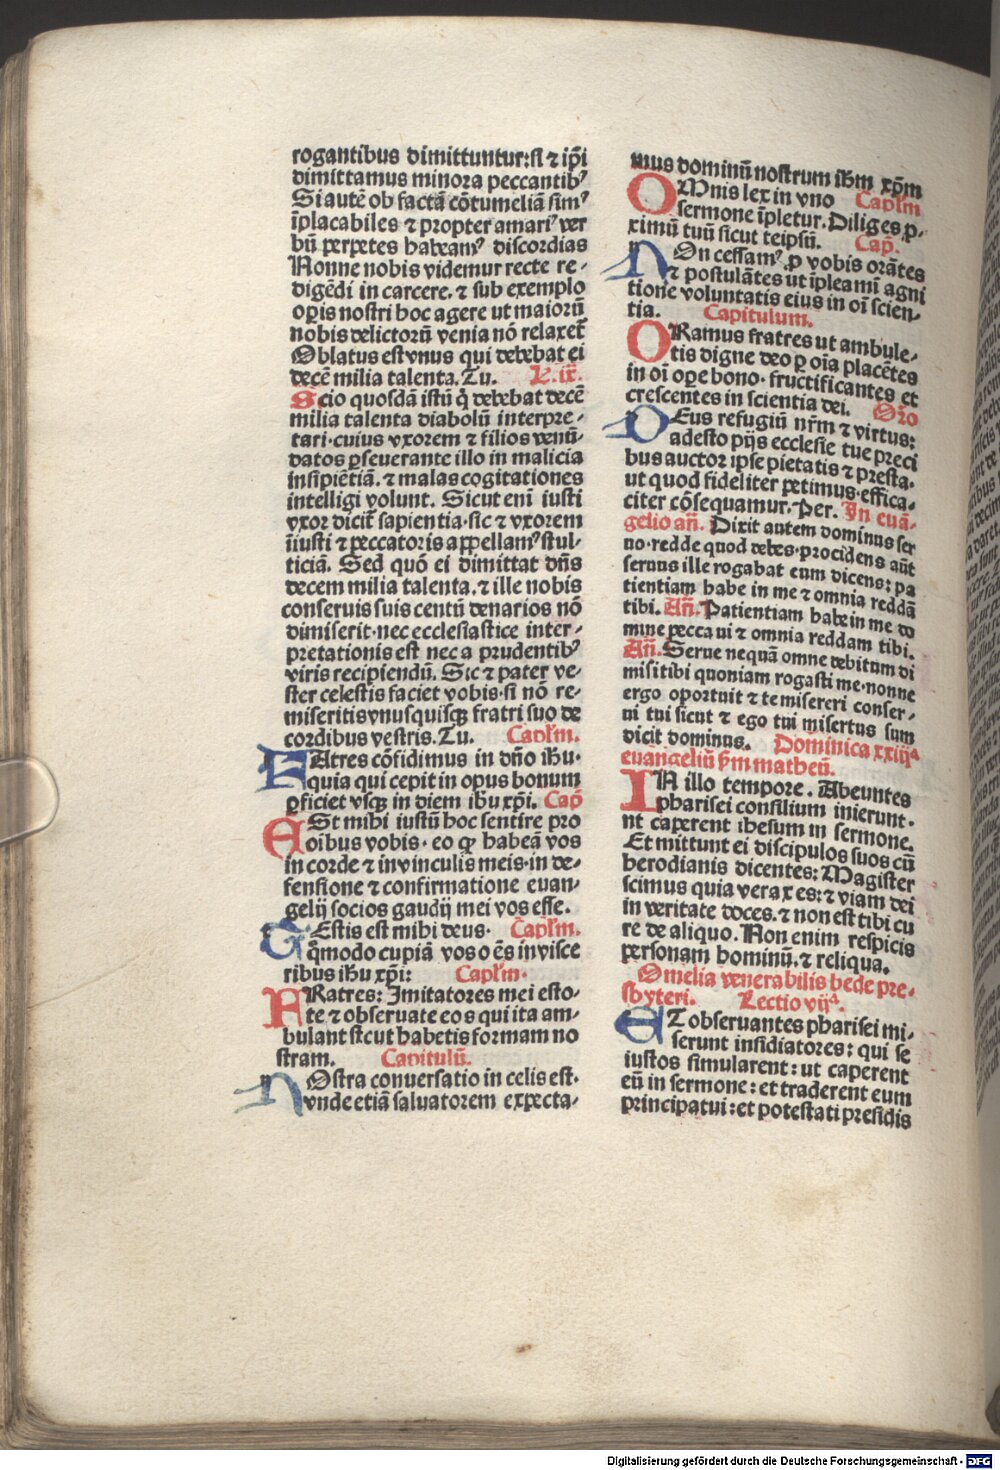 rogantibus dimittuntur:si ⁊ ip̄i
dimittamus minora peccantibꝰ
Si autē ob factā cōtumeliā simꝰ
īplacabiles ⁊ propter amariꝰ ver
bū perpetes habeamꝰ discordias
Nonne nobis videmur recte re⸗
digēdi in carcere. ⁊ sub exemplo
oꝑis nostri hoc agere ut maiorū
nobis delictorū venia nō relaxet̄
Oblatus est vnus qui debebat ei
decē milia talenta. Tu. L. ix.
Scio quosdā istū q̄ debebat decē
milia talenta diabolū interpre⸗
tari·cuius vxorem ⁊ filios venū⸗
datos ꝑseuerante illo in malicia
insipiētiā. ⁊ malas cogitationes
intelligi volunt. Sicut enī iusti
vxor dicit̄ sapientia·sic ⁊ vxorem
iīusti ⁊ peccatoris appellamꝰ stul⸗
ticiā. Sed quō ei dimittat dn̄s
decem milia talenta. ⁊ ille nobis
conseruis suis centū denarios nō
dimiserit·nec ecclesiastice inter⸗
pretationis est nec a prudentibꝰ
viris recipiendū. Sic ⁊ pater ve⸗
ster celestis faciet vobis·si nō re⸗
miseritis vnusquisqꝫ fratri suo de
cordibus vestris. Tu. Capl̄m.
FRatres cōfidimus in dn̄o ihū·
quia qui cepit in opus bonum
ꝑficiet vsqꝫ in diem ihū xp̄i. Cap̄
ESt mihi iustū hoc sentire pro
oībus vobis· eo ꝙ habeā vos
in corde ⁊ in vinculis meis·in de⸗
fensione ⁊ confirmatione euan⸗
gelij socios gaudij mei vos esse.
TEstis est mihi deus· Capl̄m.
q̄modo cupiā vos oēs in visce
ribus ihū xp̄i: Capl̄m·
FRatres: Imitatores mei esto⸗
te ⁊ obseruate eos qui ita am⸗
bulant sicut habetis formam no
stram. Capitulū.
NOstra conuersatio in celis est·
vnde etiā saluatorem expecta⸗
mus dominū nostrum ihm̄ xp̄m
OMnis lex in vno Capl̄m
sermone īpletur. Diliges ꝓ⸗
ximū tuū sicut teipsū. Cap̄.
NOn cessamꝰ. ꝓ vobis orātes
⁊ postulātes ut īpleamī agni
tione voluntatis eius in oī scien⸗
tia. Capitulum.
ORamus fratres ut ambule⸗
tis digne deo ꝑ oīa placētes
in oī oꝑe bono· fructificantes et
crescentes in scientia dei. Or̄o
DEus refugiū nr̄m ⁊ virtus:
adesto pijs ecclesie tue preci
bus auctor ipse pietatis ⁊ presta.
ut quod fideliter petimus·effica⸗
citer cōsequamur. Per. In euā⸗
gelio an̄. Dixit autem dominus ser
no·redde quod debes·procidens aūt
seruus ille rogabat eum dicens: pa
tientiam habe in me ⁊ omnia reddā
tibi. An̄. Patientiam habe in me do
mine peccaui ⁊ omnia reddam tibi.
An̄. Serue nequā omne debitum di
misi tibi quoniam rogasti me·nonne
ergo oportuit ⁊ te misereri conser⸗
ui tui sicut ⁊ ego tui misertus sum
dicit dominus. Dominica xxiijᵃ
euāngeliū ẜm matheū.
IN illo tempore. Abeuntes
pharisei consilium inierunt·
ut caperent ihesum in sermone.
Et mittunt ei discipulos suos cū
herodianis dicentes: Magister
scimus quia verax es: ⁊ viam dei
in veritate doces. ⁊ non est tibi cu
re de aliquo. Non enim respicis
personam hominū. ⁊ reliqua.
Omelia venerabilis bede pre⸗
sbyteri. Lectio vijᵃ.
ET obseruantes pharisei mi⸗
serunt insidiatores: qui se
iustos simularent: ut caperent
eū in sermone: et traderent eum
principatui: et potestati presidis
Digitalisierung gefördert durch die Deutsche Forschungsgemeinschaft - DFG